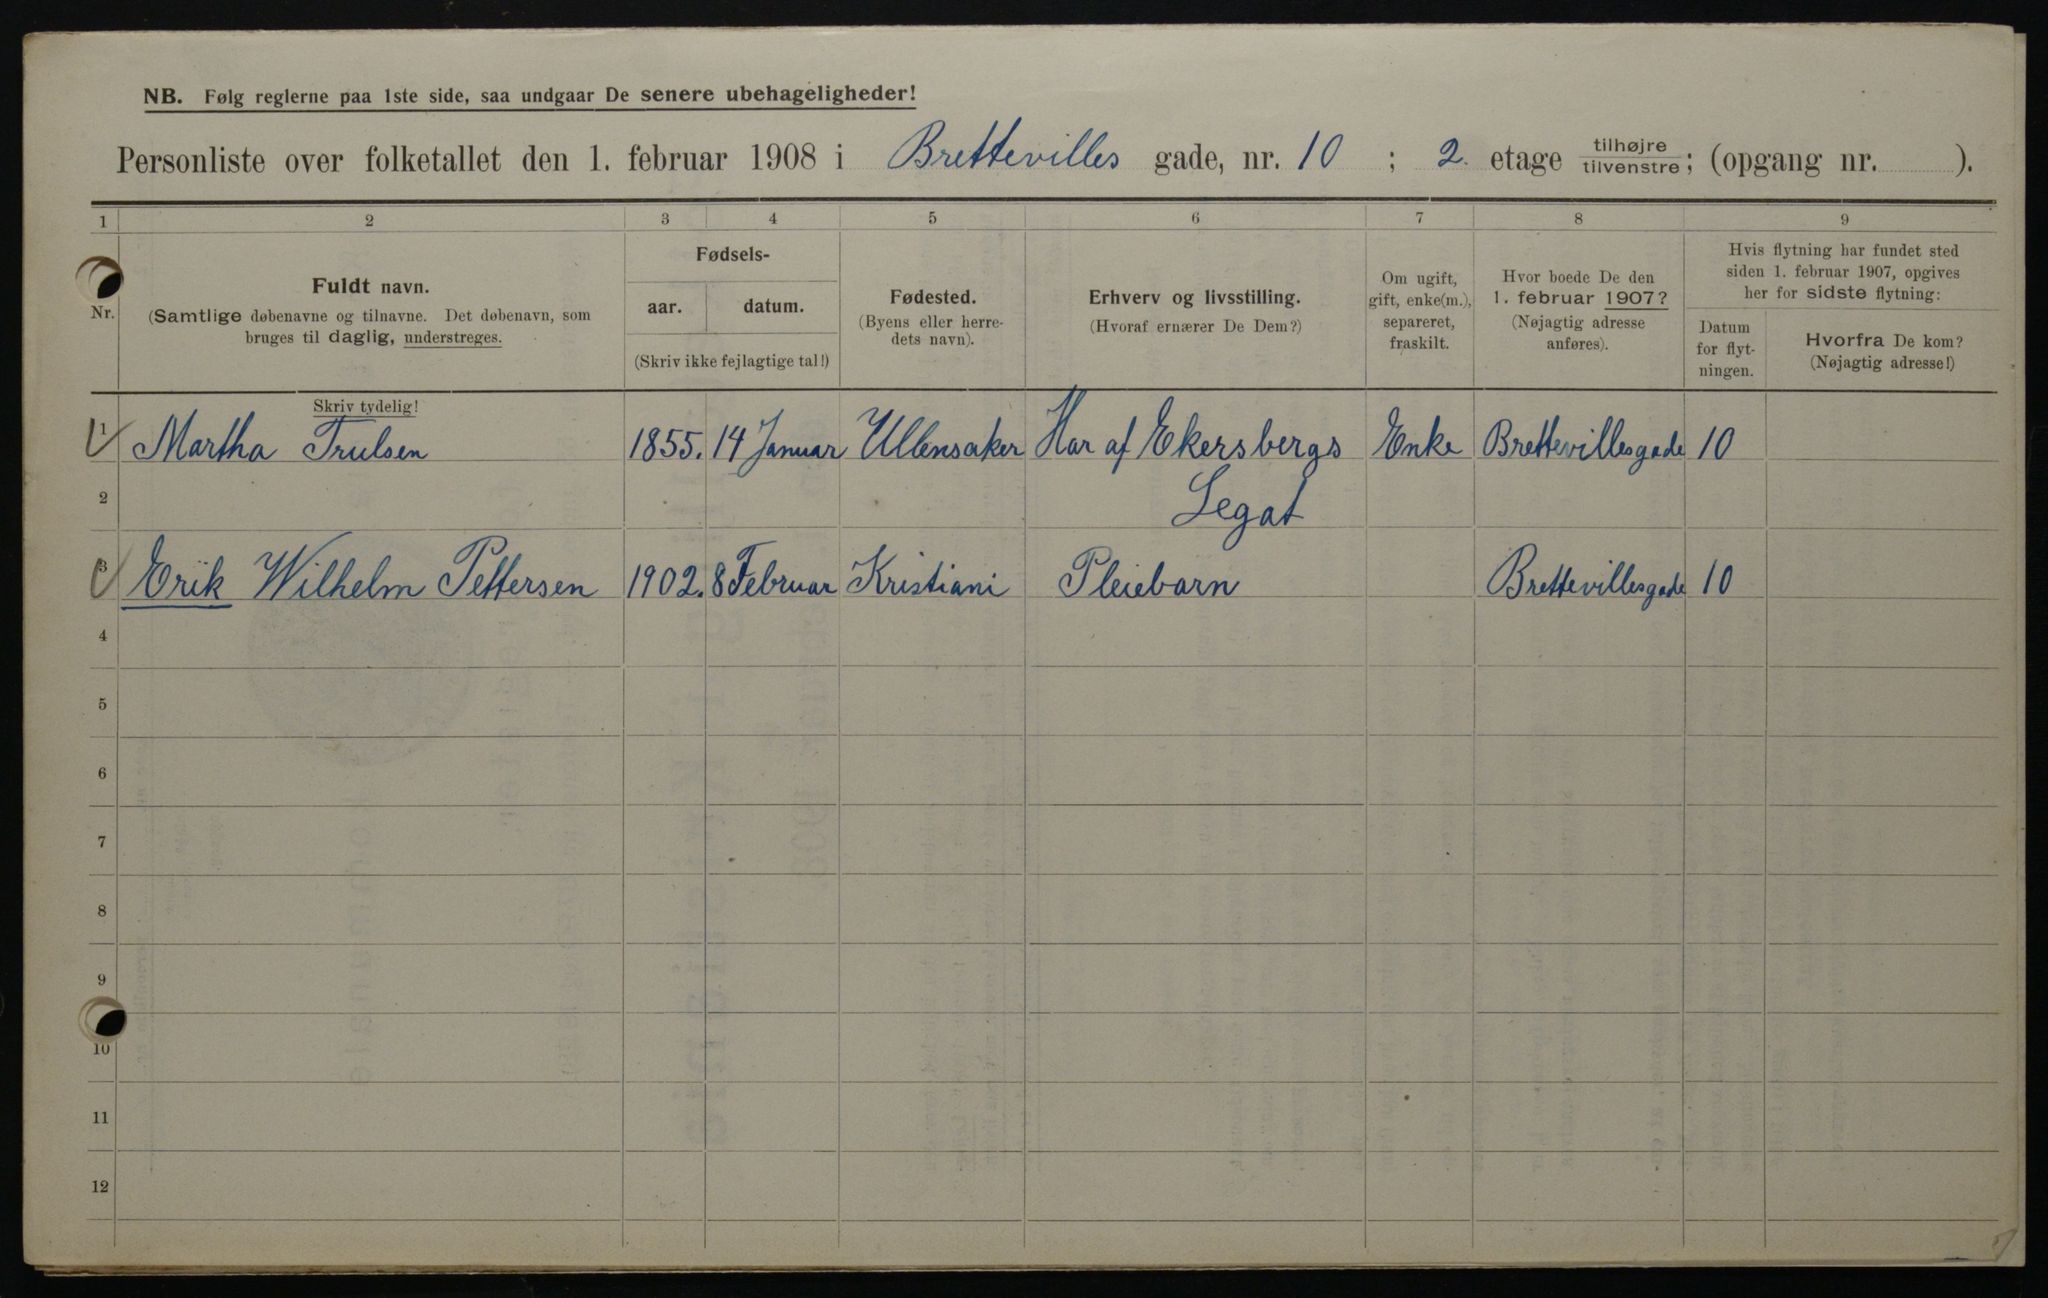 NB. Følg reglerne paa 1ste side, saa undgaar De senere ubehageligheder!
Personliste over folketallet den 1. februar 1908 i Brettevilles gade, nr. 10 ; 2. etage tilhøjre/tilvenstre; (opgang nr. ).
1 2 3 4 5 6 7 8 9
Nr.
Fuldt navn.
(Samtlige døbenavne og tilnavne. Det døbenavn, som
bruges til daglig, understreges.
Skriv tydelig!
Fødsels-
aar. datum.
(Skriv ikke fejlagtige tal!)
Fødested.
(Byens eller herre-
dets navn).
Erhverv og livsstilling.
(Hvoraf ernærer De Dem?)
Om ugift,
gift, enke(m.),
separeret,
fraskilt.
Hvor boede De den
1. februar 1907?
(Nøjagtig adresse
anføres).
Hvis flytning har fundet sted
siden 1. februar 1907, opgives
her for sidste flytning:
Datum
for flyt-
ningen.
Hvorfra De kom?
(Nøjagtig adresse!)
1 Martha Trulsen 1855. 14 Januar Ullensaker Har af Ekersbergs Enke Brettevillesgade 10
2 Legat
3 Erik Wilhelm Pettersen 1902. 8 Februar Kristiani Pleiebarn Brettevillesgade 10
4
5
6
7
8
9
10
11
12